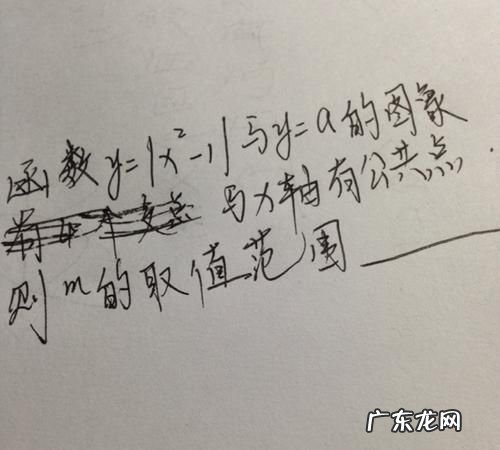 函数y=|x²-1|与y=a的图象
与x轴有公共点.
则m的取值范围
广东龙网